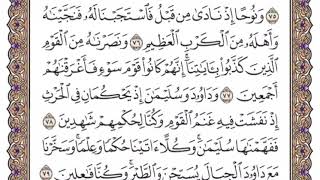 ٧٥ وَنُوحًا إِذْ نَادَىٰ مِن قَبْلُ فَاسْتَجَبْنَا لَهُ فَنَجَّيْنَاهُ
وَأَهْلَهُ مِنَ الْكَرْبِ الْعَظِيمِ ٧٦ وَنَصَرْنَاهُ مِنَ الْقَوْمِ
الَّذِينَ كَذَّبُوا بِآيَاتِنَا إِنَّهُمْ كَانُوا قَوْمَ سَوْءٍ فَأَغْرَقْنَاهُمْ
أَجْمَعِينَ ٧٧ وَدَاوُودَ وَسُلَيْمَانَ إِذْ يَحْكُمَانِ فِي الْحَرْثِ
إِذْ نَفَشَتْ فِيهِ غَنَمُ الْقَوْمِ وَكُنَّا لِحُكْمِهِمْ شَاهِدِينَ ٧٨
فَفَهَّمْنَاهَا سُلَيْمَانَ وَكُلًّا آتَيْنَا حُكْمًا وَعِلْمًا وَسَخَّرْنَا
مَعَ دَاوُودَ الْجِبَالَ يُسَبِّحْنَ وَالطَّيْرَ وَكُنَّا فَاعِلِينَ ٧٩